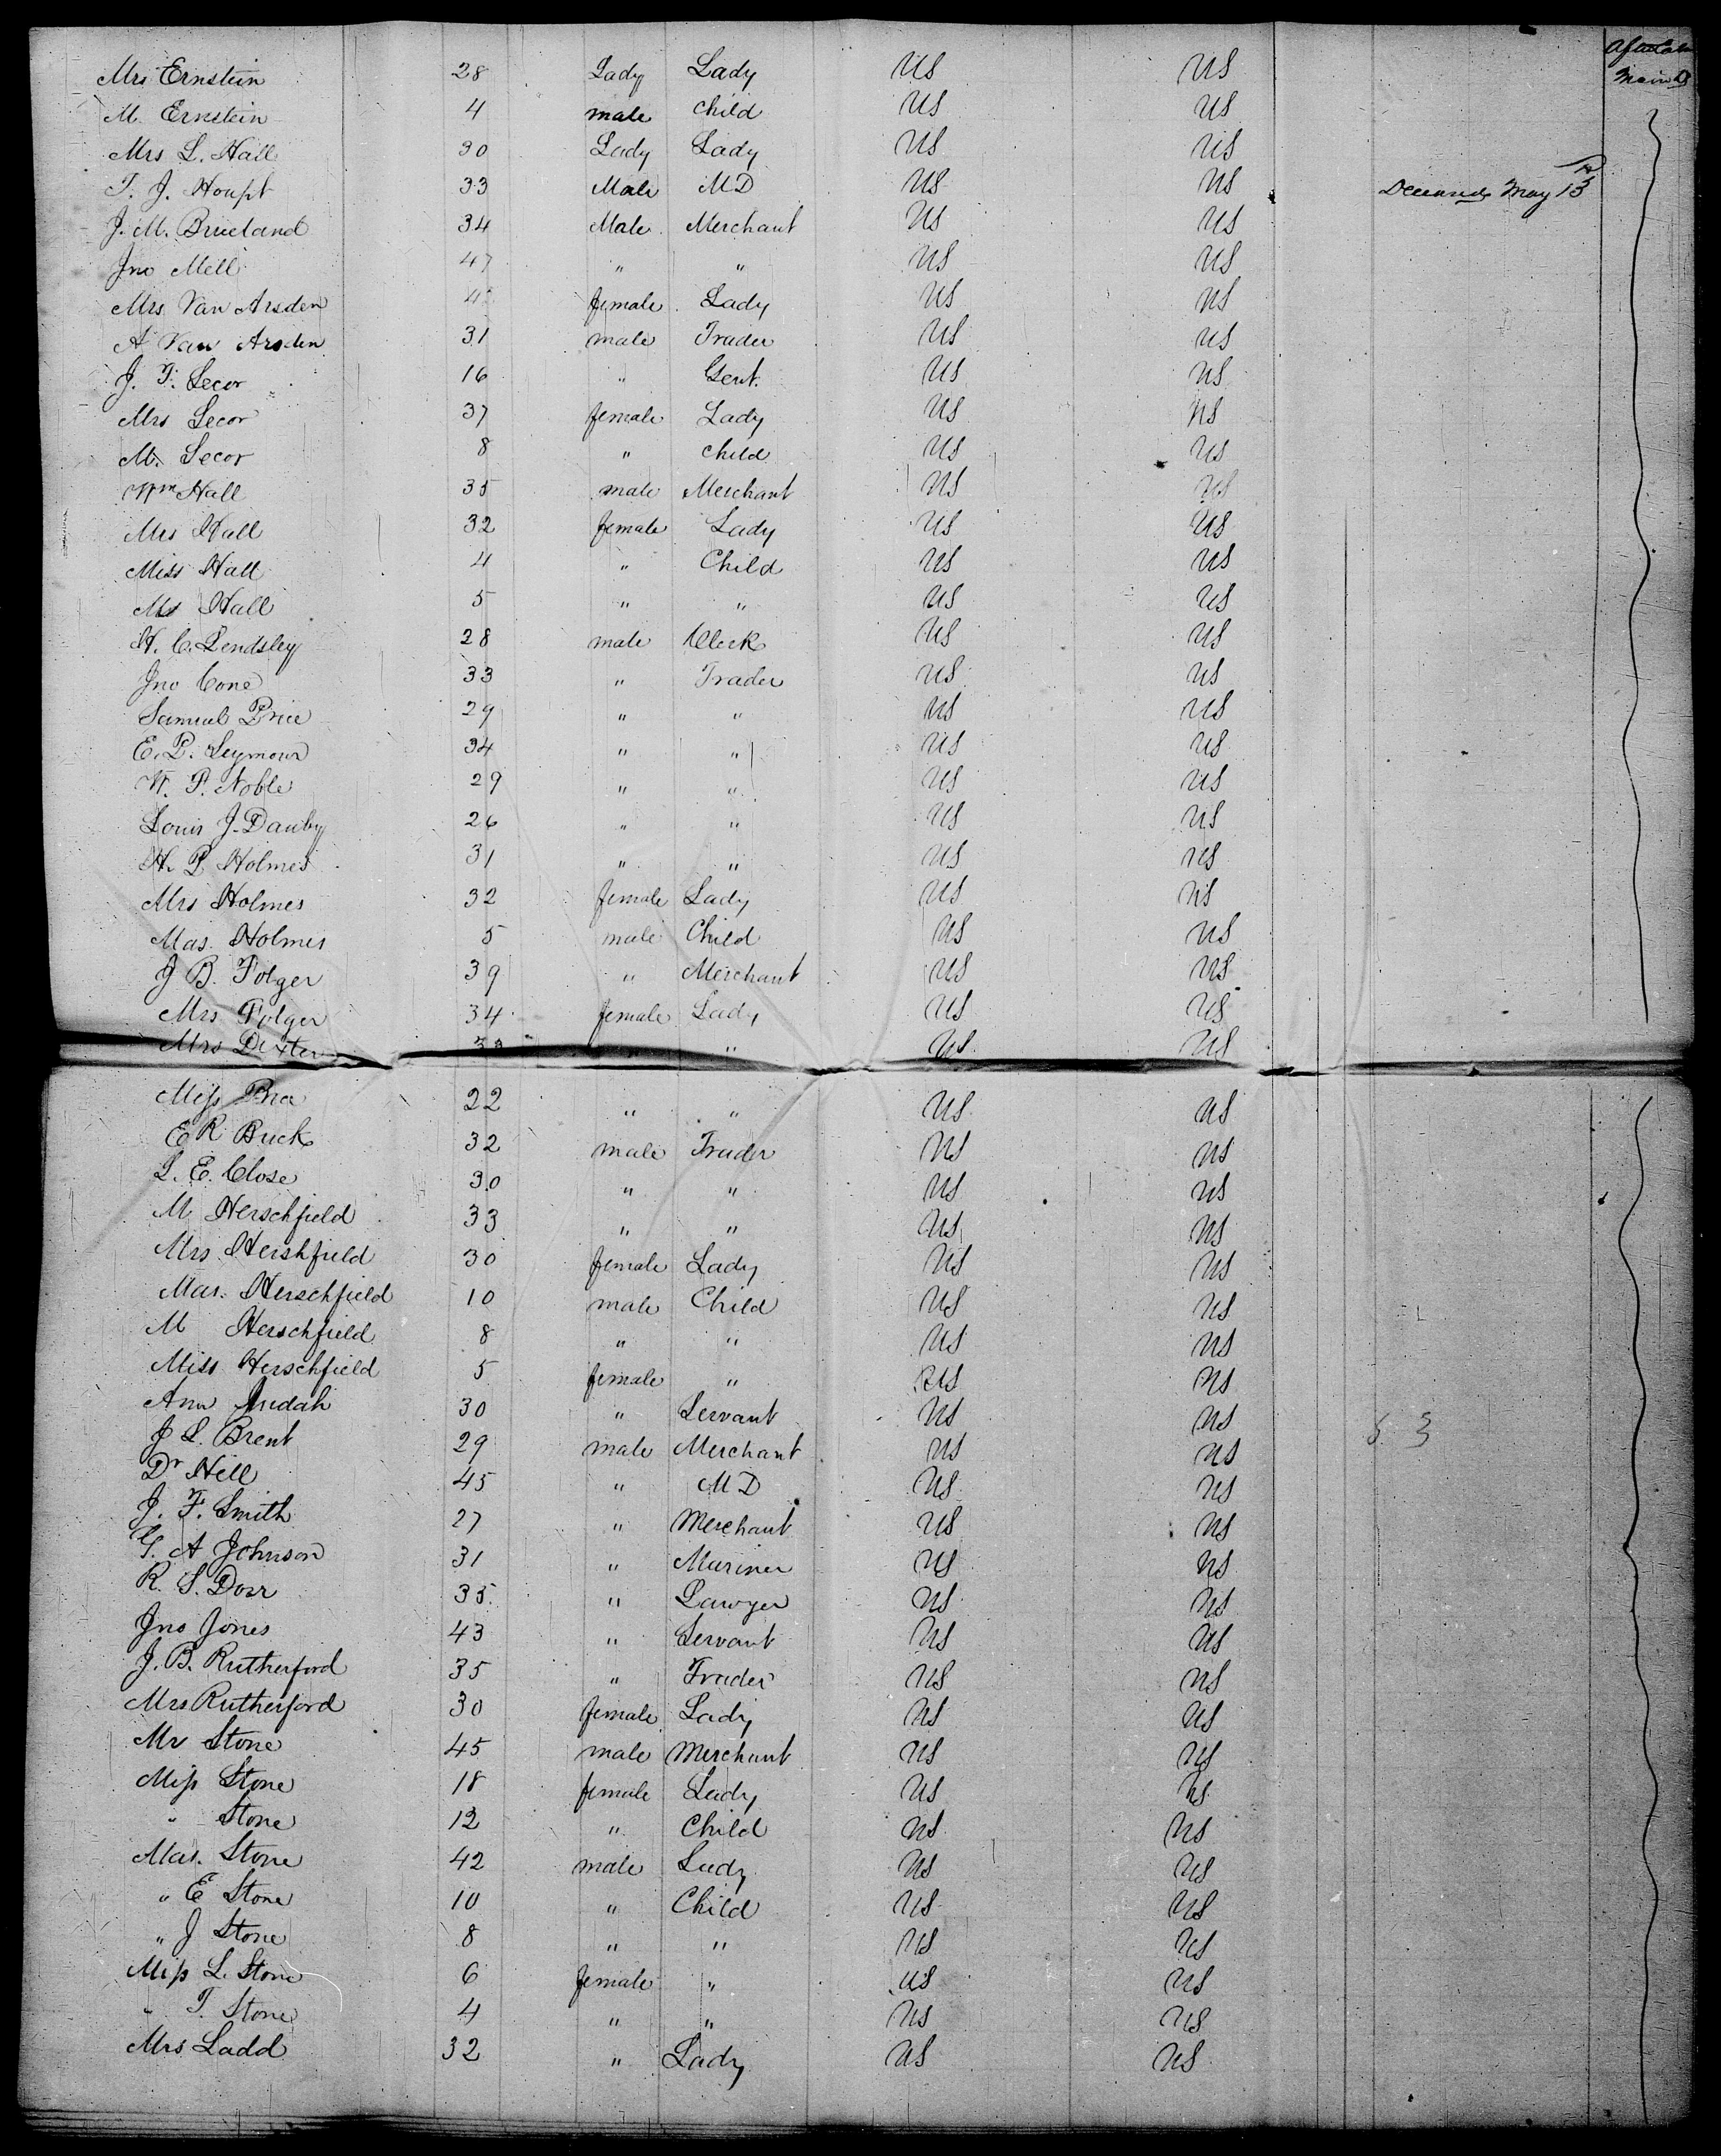 Mrs Ernstein 28 Lady Lady US US Aft Cabin
Main D
M. Ernstein 4 male Child US US
Mrs L. Hall 30 Lady Lady US US
T. J. Houpt 33 Male MD US US Deceased May 13th
J. M. Bruceland 34 Male Merchant US US
Jno Mell 47 " " US US
Mrs Van Arsden female Lady US US
A Van Arsden 31 male Trader US US
J. T. Secor 16 " Gent. US US
Mrs Secor 37 female Lady US US
M. Secor 8 " Child US US
Wm Hall 35 male Merchant US US
Mrs Hall 32 female Lady US US
Miss Hall 4 " Child US US
Ms Hall 5 " " US US
H. C. Lendsley 28 male Clerk US US
Jno Cone 33 " Trader US US
Samuel Price 29 " " US US
E. P. Seymour 34 " " US US
W. P. Noble 29 " " US US
Louis J. Dauby 26 " " US US
H. P. Holmes 31 " " US US
Mrs Holmes 32 female Lady US US
Mas. Holmes 5 male Child US US
J B. Folger 39 " Merchant US US
Mrs Folger 34 female Lady US US
Mrs Dexter " US US
Miss Price 22 " " US US
E R Buck 32 male Trader US US
L. E. Close 30 " " US US
M Herschfield 33 " " US US
Mrs Hershfield 30 female Lady US US
Mas. Herschfield 10 male Child US US
M Herschfield 8 " " US US
Miss Herschfield 5 female " US US
Ann Judah 30 " Servant US US
J L. Brent 29 male Merchant US US
Dr Hill 45 " MD US US
J. F. Smith 27 " Merchant US US
G. A Johnson 31 " Mariner US US
R. S. Dorr 35 " Lawyer US US
Jno Jones 43 " Servant US US
J. B. Rutherford 35 " Trader US US
Mrs Rutherford 30 female Lady US US
Mr Stone 45 male Merchant US US
Miss Stone 18 female Lady US US
" Stone 12 " Child US US
Mas. Stone 42 male Lady US US
" E Stone 10 " Child US US
" J Stone 8 " " US US
Miss L. Stone 6 female " US US
" T. Stone 4 " " US US
Mrs Ladd 32 " Lady US US